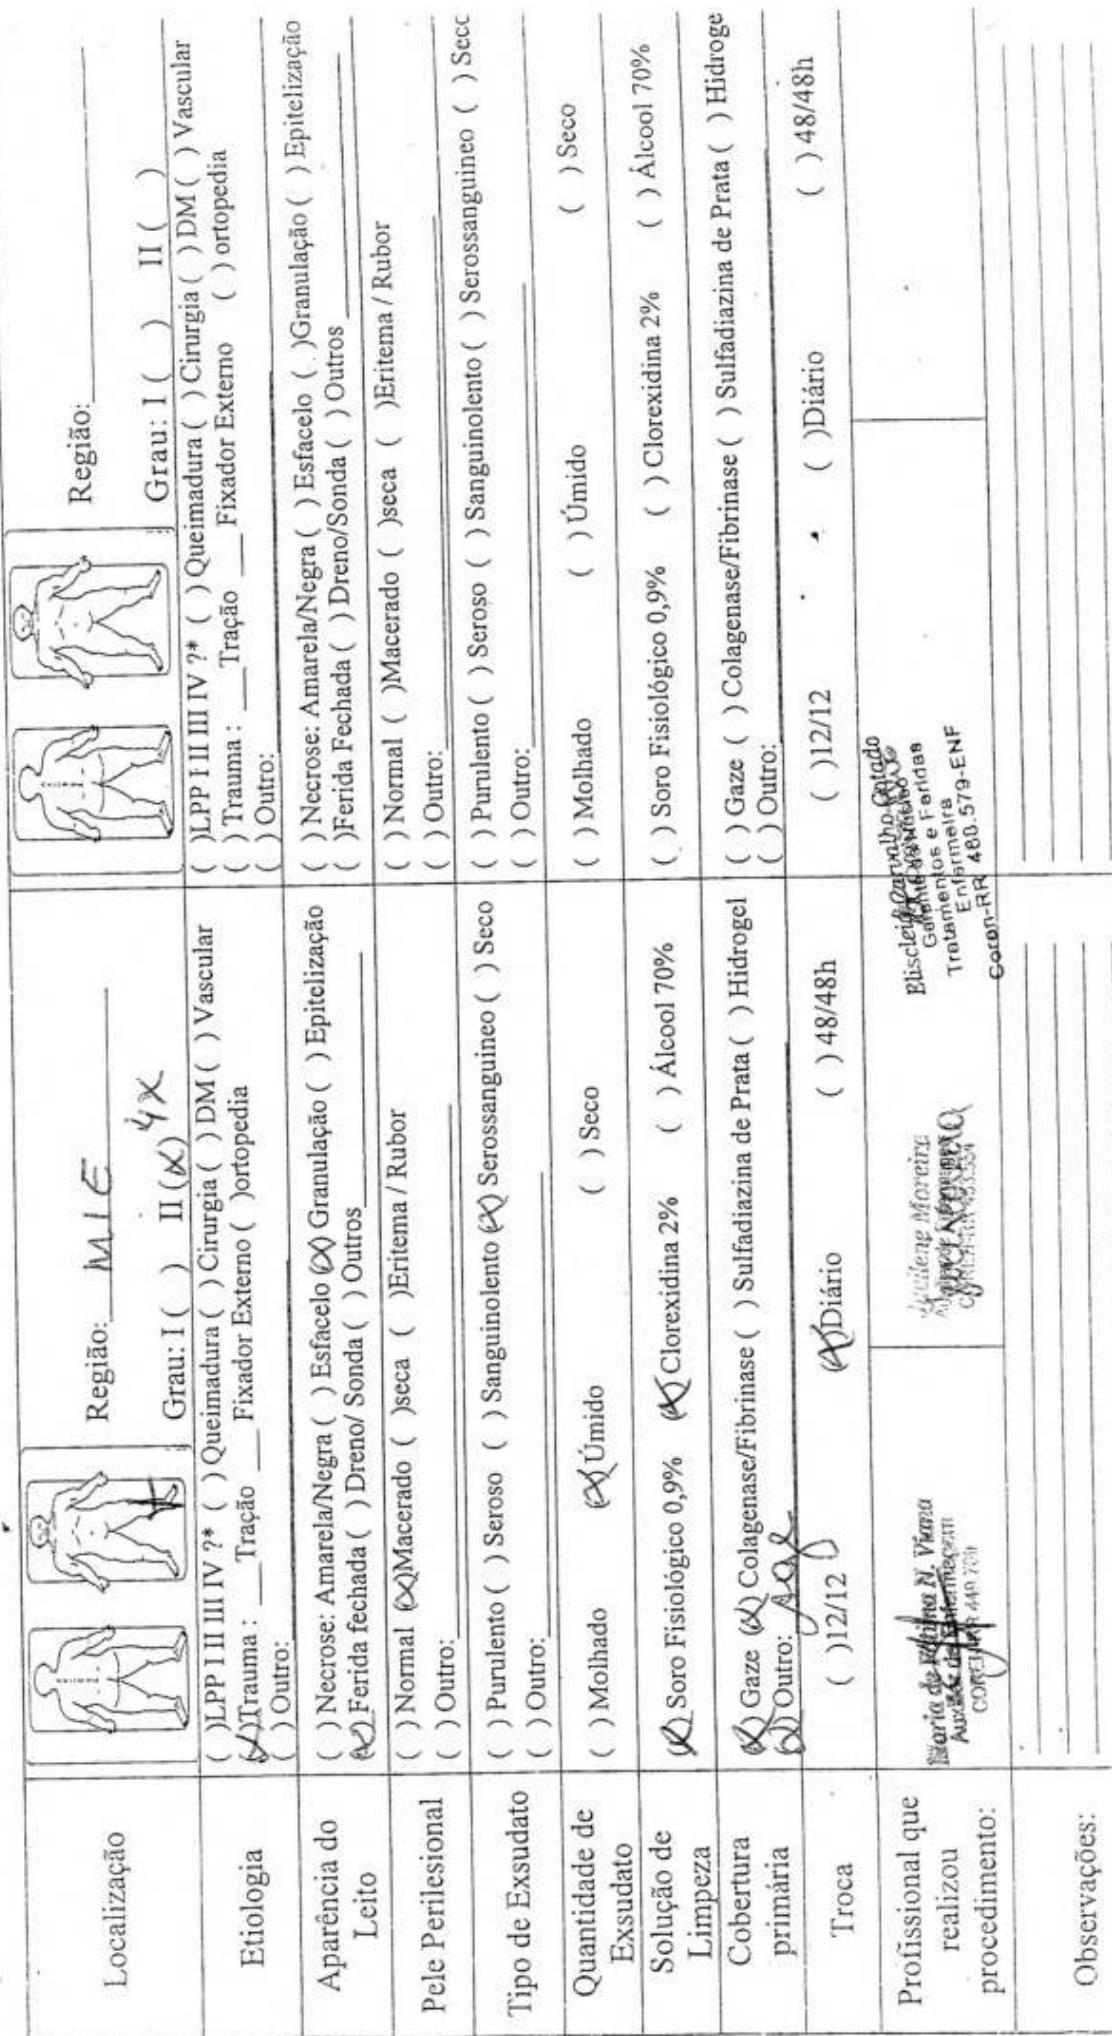 Localização
Região: MIE
Grau: I ( ) II (x) 4x
Região:
Grau: I ( ) II ( )
Etiologia
( )LPP I II III IV ?* ( ) Queimadura ( ) Cirurgia ( ) DM ( ) Vascular
(x)Trauma : ___Tração ___Fixador Externo ( )ortopedia
( ) Outro:
( )LPP I II III IV ?* ( ) Queimadura ( ) Cirurgia ( ) DM ( ) Vascular
( ) Trauma : ___Tração ___Fixador Externo ( ) ortopedia
( ) Outro:
Aparência do
Leito
( ) Necrose: Amarela/Negra ( ) Esfacelo (x) Granulação ( ) Epitelização
(x) Ferida fechada ( ) Dreno/ Sonda ( ) Outros
( ) Necrose: Amarela/Negra ( ) Esfacelo ( )Granulação ( ) Epitelização
( )Ferida Fechada ( ) Dreno/Sonda ( ) Outros
Pele Perilesional
( ) Normal (x)Macerado ( )seca ( )Eritema / Rubor
( ) Outro:
( ) Normal ( )Macerado ( )seca ( )Eritema / Rubor
( ) Outro:
Tipo de Exsudato
( ) Purulento ( ) Seroso ( ) Sanguinolento (x) Serossanguineo ( ) Seco
( ) Outro:
( ) Purulento ( ) Seroso ( ) Sanguinolento ( ) Serossanguineo ( ) Secc
( ) Outro:
Quantidade de
Exsudato
( ) Molhado (x) Úmido ( ) Seco
( ) Molhado ( ) Úmido ( ) Seco
Solução de
Limpeza
(x) Soro Fisiológico 0,9% (x) Clorexidina 2% ( ) Álcool 70%
( ) Soro Fisiológico 0,9% ( ) Clorexidina 2% ( ) Álcool 70%
Cobertura
primária
(x) Gaze (x) Colagenase/Fibrinase ( ) Sulfadiazina de Prata ( ) Hidrogel
(x) Outro:
( ) Gaze ( ) Colagenase/Fibrinase ( ) Sulfadiazina de Prata ( ) Hidroge
( ) Outro:
Troca
( )12/12 (x)Diário ( ) 48/48h
( )12/12 ( )Diário ( ) 48/48h
Profissional que
realizou
procedimento:
Maria de Fátima N. Viana
Auxiliar de Enfermagem
Moreira
Carvalho
Tratamentos e Feridas
Enfermeira
Coren-RR 480.579-ENF
Observações: